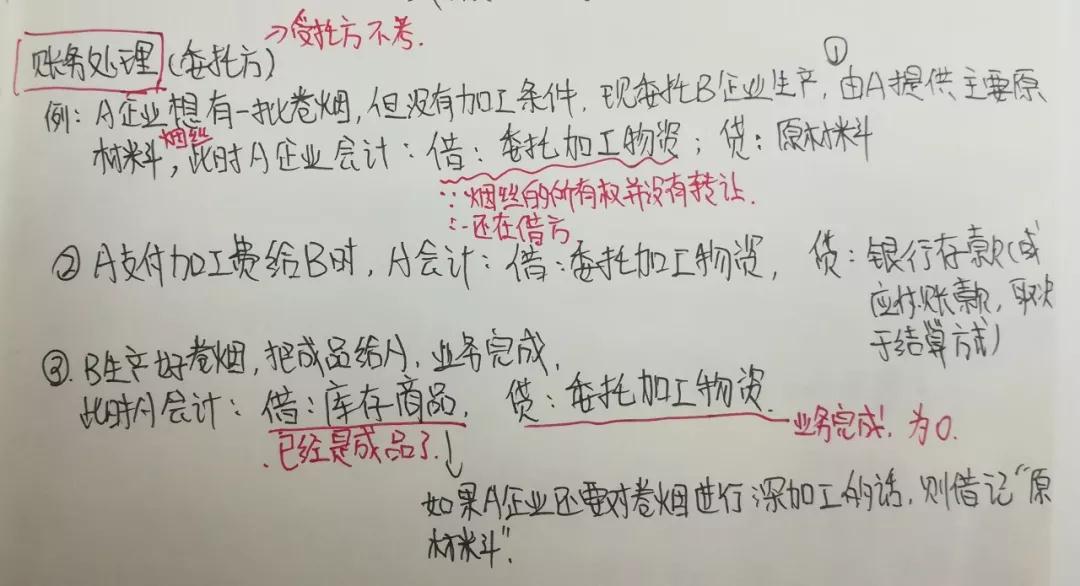 →受托方不考.
账务处理(委托方)
①
例：A企业想有一批卷烟，但没有加工条件，现委托B企业生产，由A提供主要原
烟丝
材料，此时A企业会计：借：委托加工物资；贷：原材料
∵烟丝的所有权并没有转让.
∴还在借方
② A支付加工费给B时，A会计：借：委托加工物资，贷：银行存款(或
应付账款，取决
于结算方式)
③. B生产好卷烟，把成品给A，业务完成，
此时A会计：借：库存商品，贷：委托加工物资.
业务完成，为0.
已经是成品了.
如果A企业还要对卷烟进行深加工的话，则借记“原
材料”.